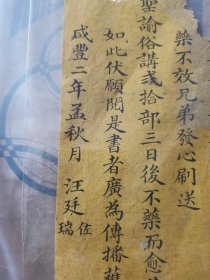 藥不效兄弟發心刷送
聖諭俗講弍拾部三日後不藥而愈
如此伏願閱是書者廣為傳播
咸豐二年孟秋月 汪廷佐瑞